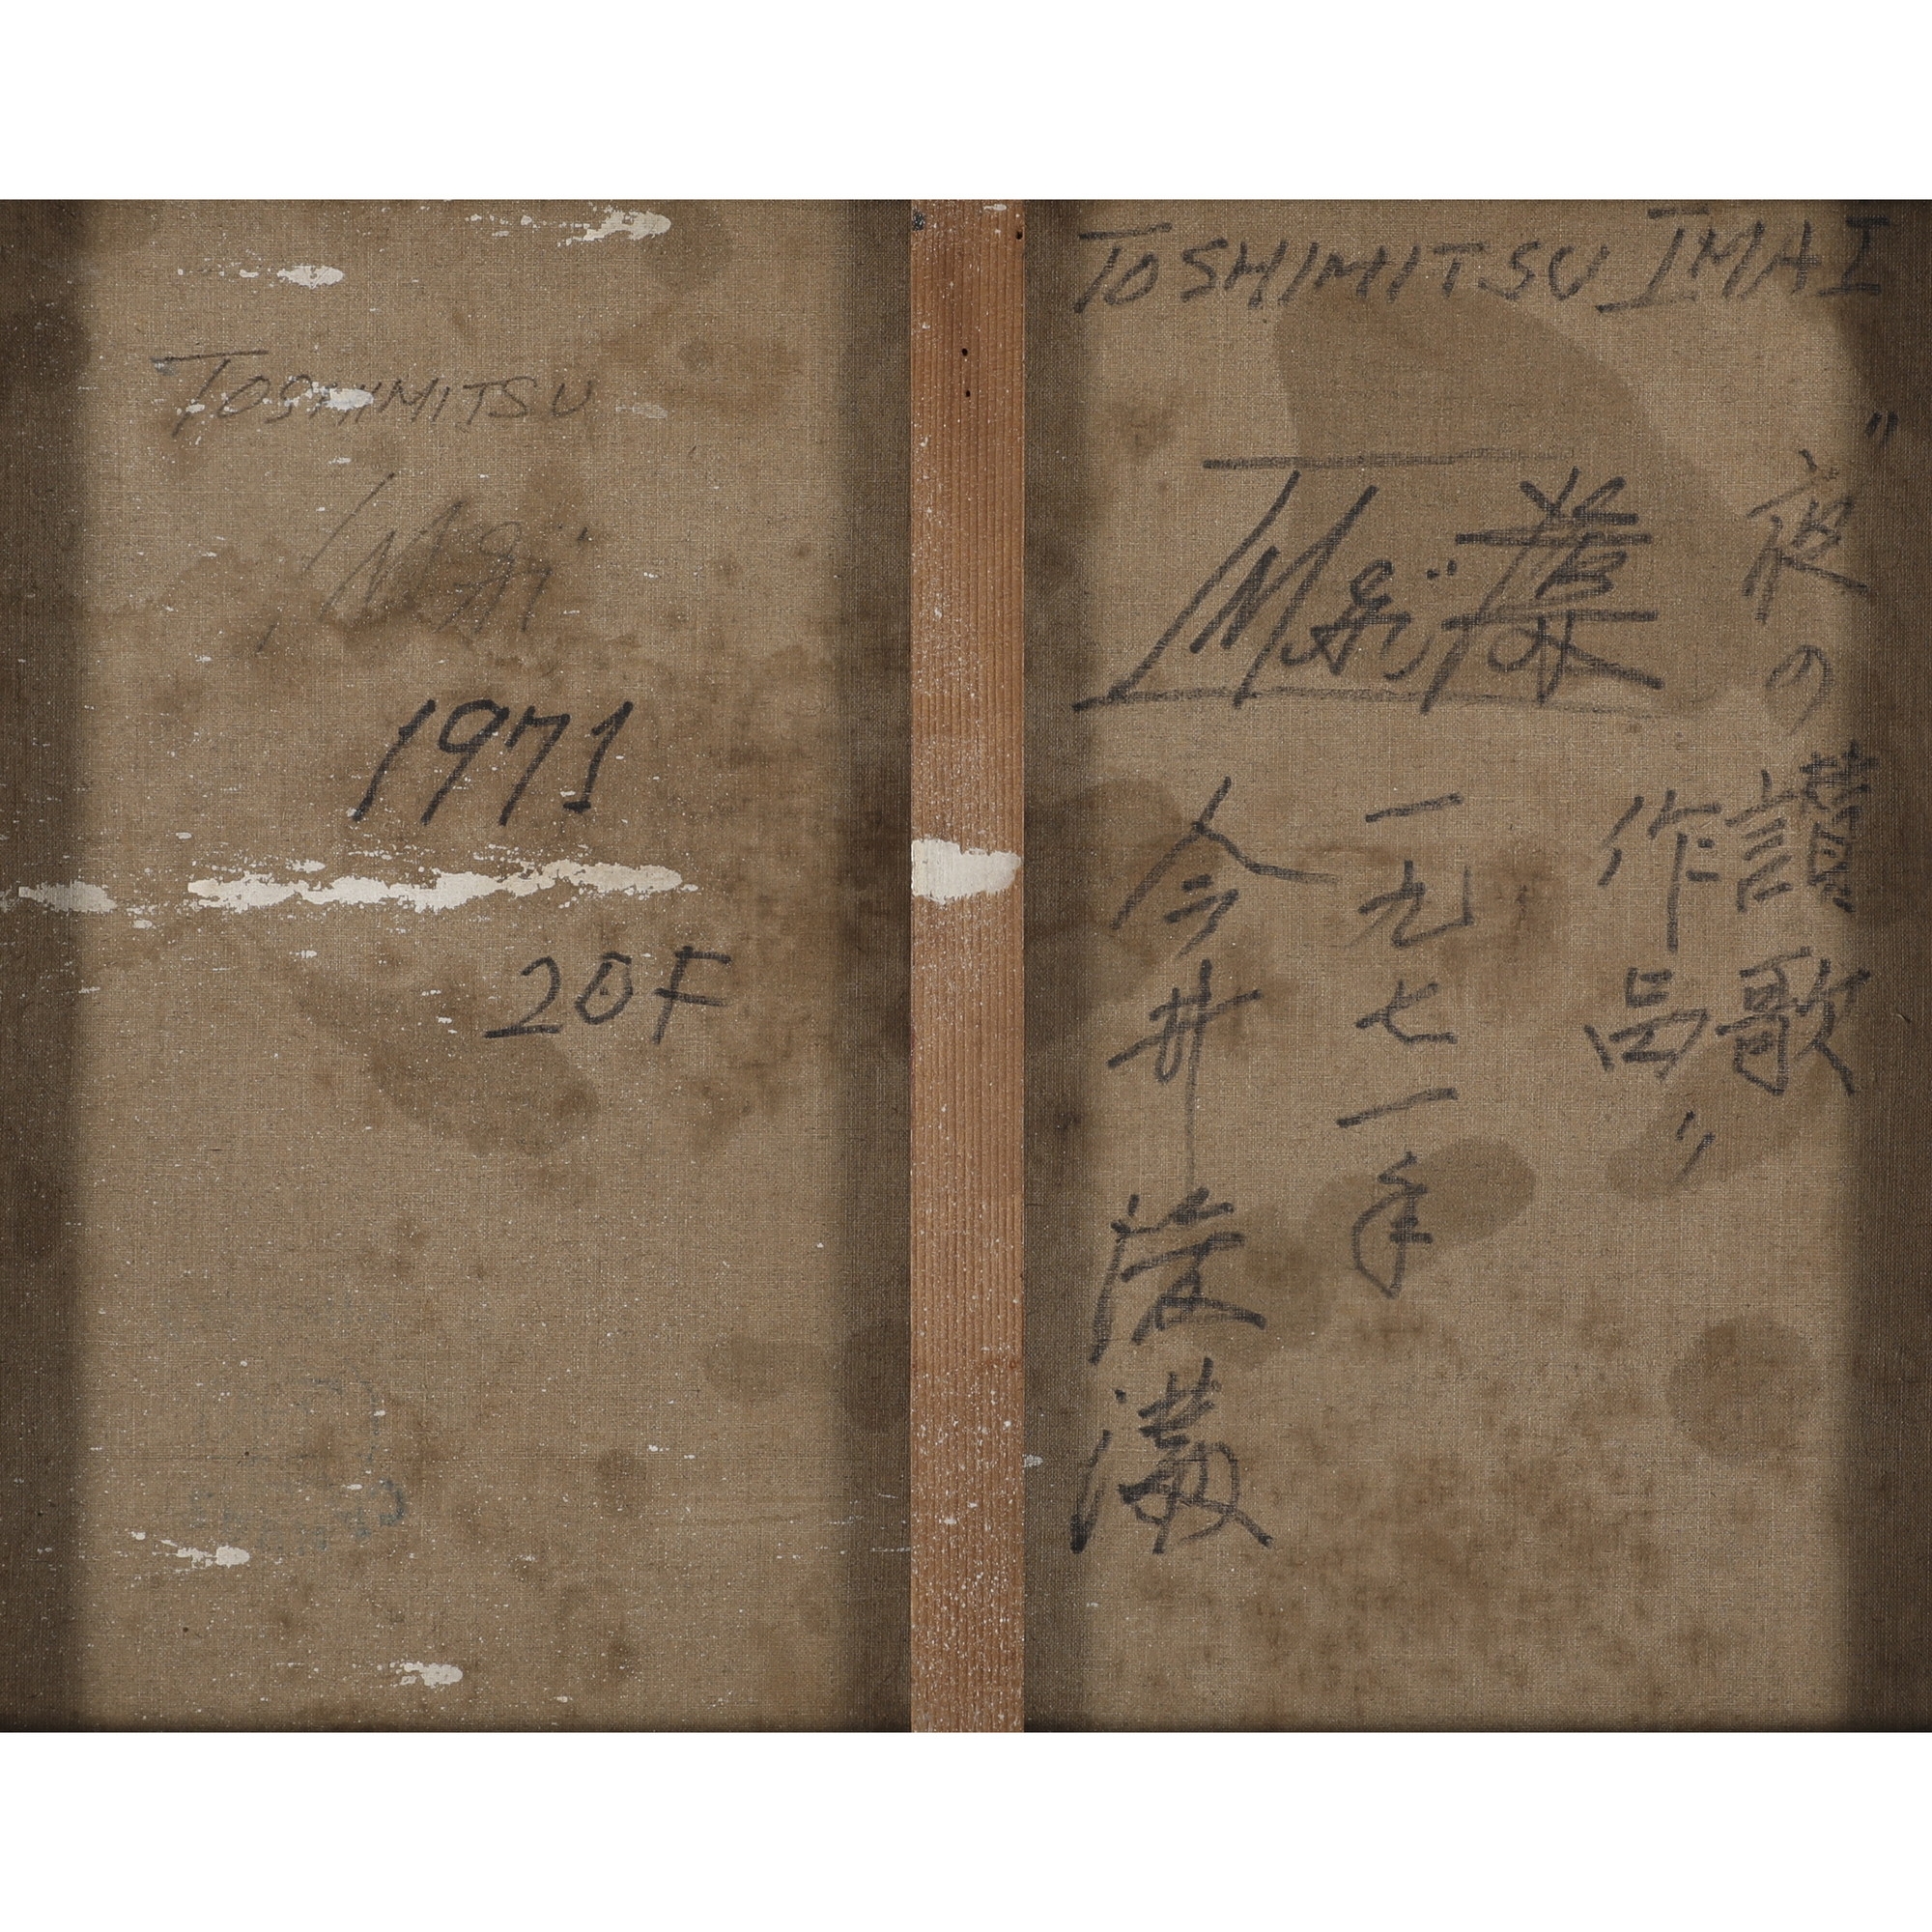 TOSHIMITSU
IMai
1971
20F
TOSHIMITSU IMAI
IMai
"夜の讃歌
作品"
一九七一年
今井俊満